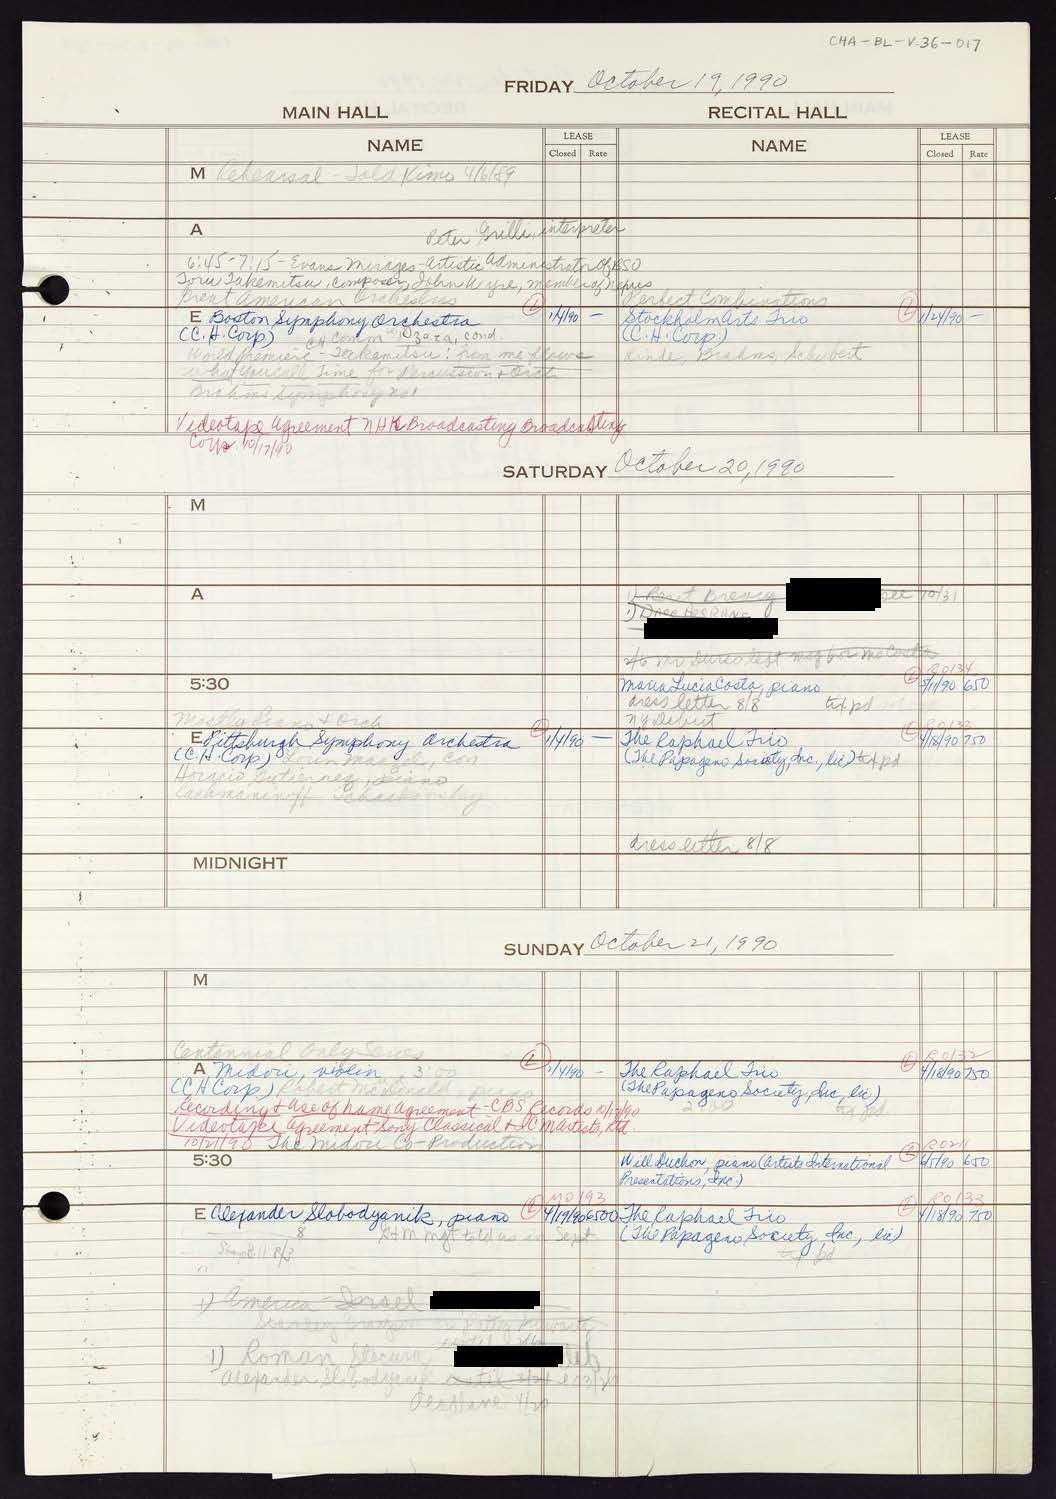 CHA-BL-V.36-017
FRIDAY October 19, 1990
MAIN HALL
RECITAL HALL
NAME
LEASE
Closed Rate
NAME
LEASE
Closed Rate
M Rehearsal - Told Kimo 4/6/89
A
Peter Grilli, interpreter
6:45-7:15 - Evans Mirages - Artistic Administrator of BSO
Toru Takemitsu, composer, John Wyre, member of Nexus
Great American Orchestras
Perfect Combinations
E Boston Symphony Orchestra L 1/4/90 —
Stockholm Arts Trio L 1/24/90 —
(C.H. Corp) CH comm Ozawa, cond.
(C.H. Corp.)
World Premiere - Takemitsu: from me flows
Linde, Brahms, Schubert
what you call Time for Percussion + Orch
Brahms Symphony no 1
Videotape Agreement NHK Broadcasting Broadcasting
Corp. 10/17/90
SATURDAY October 20, 1990
M
A
1)
see 10/31
1)
left msg for Ms Costa
R0134
5:30
Maria Lucia Costa, piano L 5/11/90 650
dress letter 8/8 txt pd
NY Debut
Mostly Piano + Orch
R0133
E Pittsburgh Symphony Orchestra L 1/4/90 —
The Raphael Trio 4/18/90 750
(C.H. Corp) Lorin Maazel, con
(The Papageno Society, Inc., lic) txt pd
Horacio Gutierrez, piano
Rachmaninoff Tchaikovsky
dress letter 8/8
MIDNIGHT
SUNDAY October 21, 1990
M
Centennial Only Series
R0132
A Midori, violin 3:00 L 1/4/90 -
The Raphael Trio L 4/18/90 750
(C H Corp) Robert McDonald, piano
(The Papageno Society, Inc, lic)
Recording & Use of Name Agreement - CBS Records 10/17/90
2:00 txt pd
Videotape Agreement Sony Classical & IC M Artists, Ltd.
10/21/90 The Midori Co-Production
5:30
R0211
Will Duchon, piano (Artists International L 6/5/90 650
Presentations, Inc.)
M0193
R0133
E Alexander Slobodyanik, piano L 4/19/90 6500
The Raphael Trio L 4/18/90 750
mgt told us in Sept
(The Papageno Society, Inc., lic)
8
txt pd
8/3
1) America-Israel
1) Roman
Alexander Slobodyanik
1/20